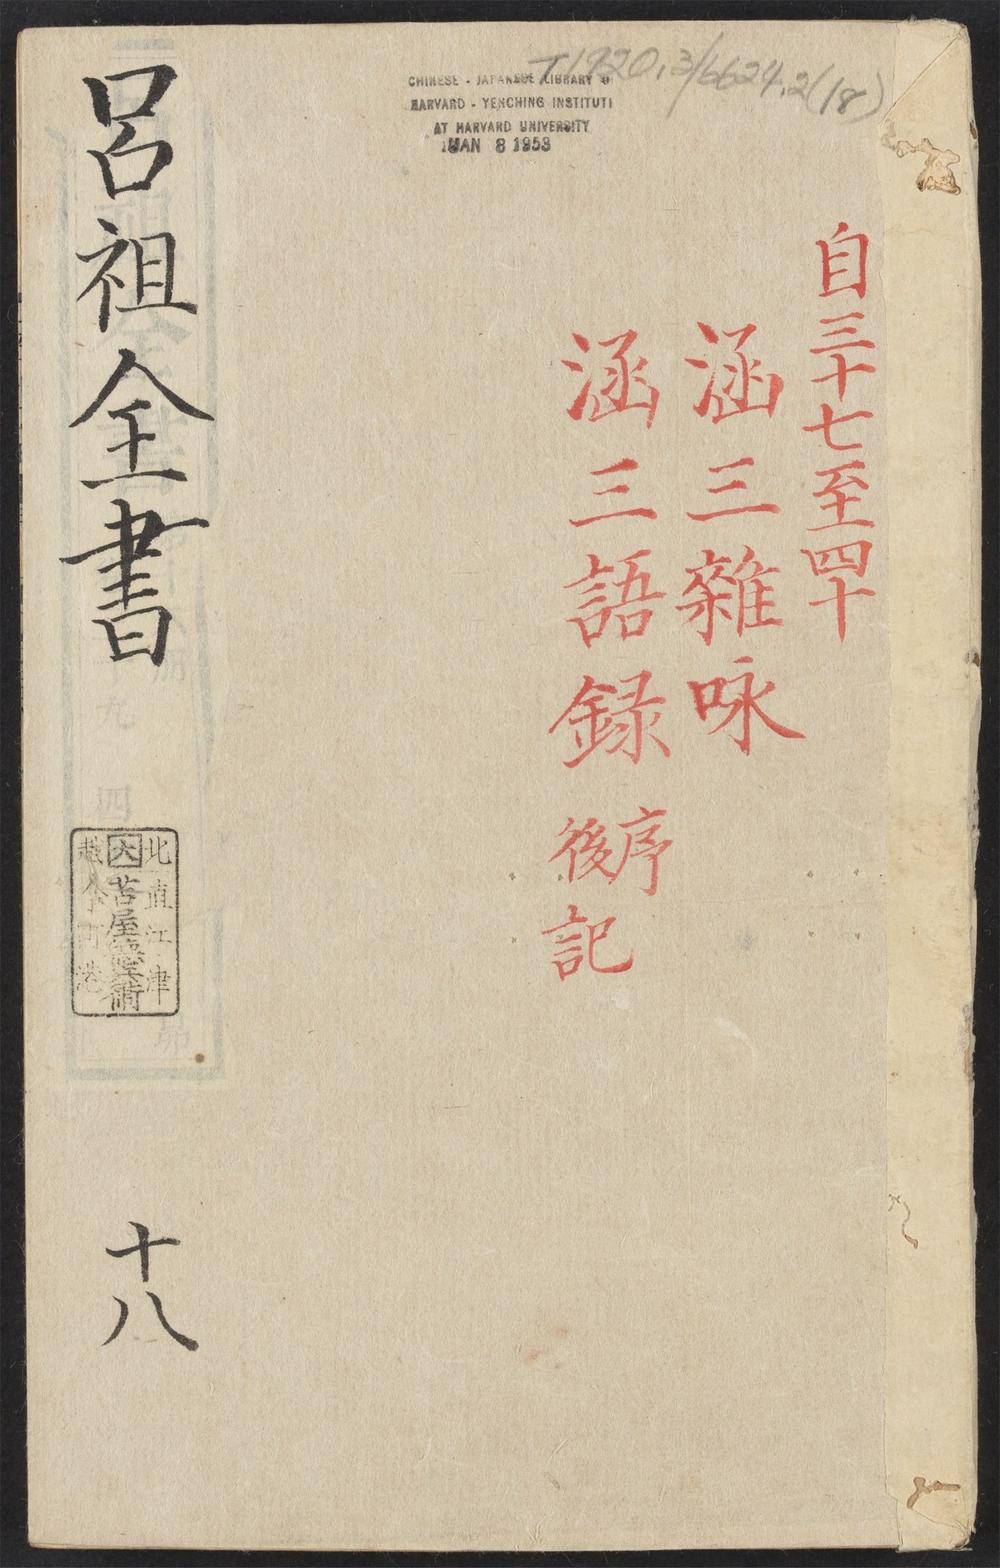 T1920.3/6624.2(18)
CHINESE - JAPANESE LIBRARY O
HARVARD - YENCHING INSTITUTI
AT HARVARD UNIVERSITY
JAN 8 1953
自三十七至四十
涵三雜咏
涵三語録 序
後記
呂祖全書
十八
北直江津
苫屋